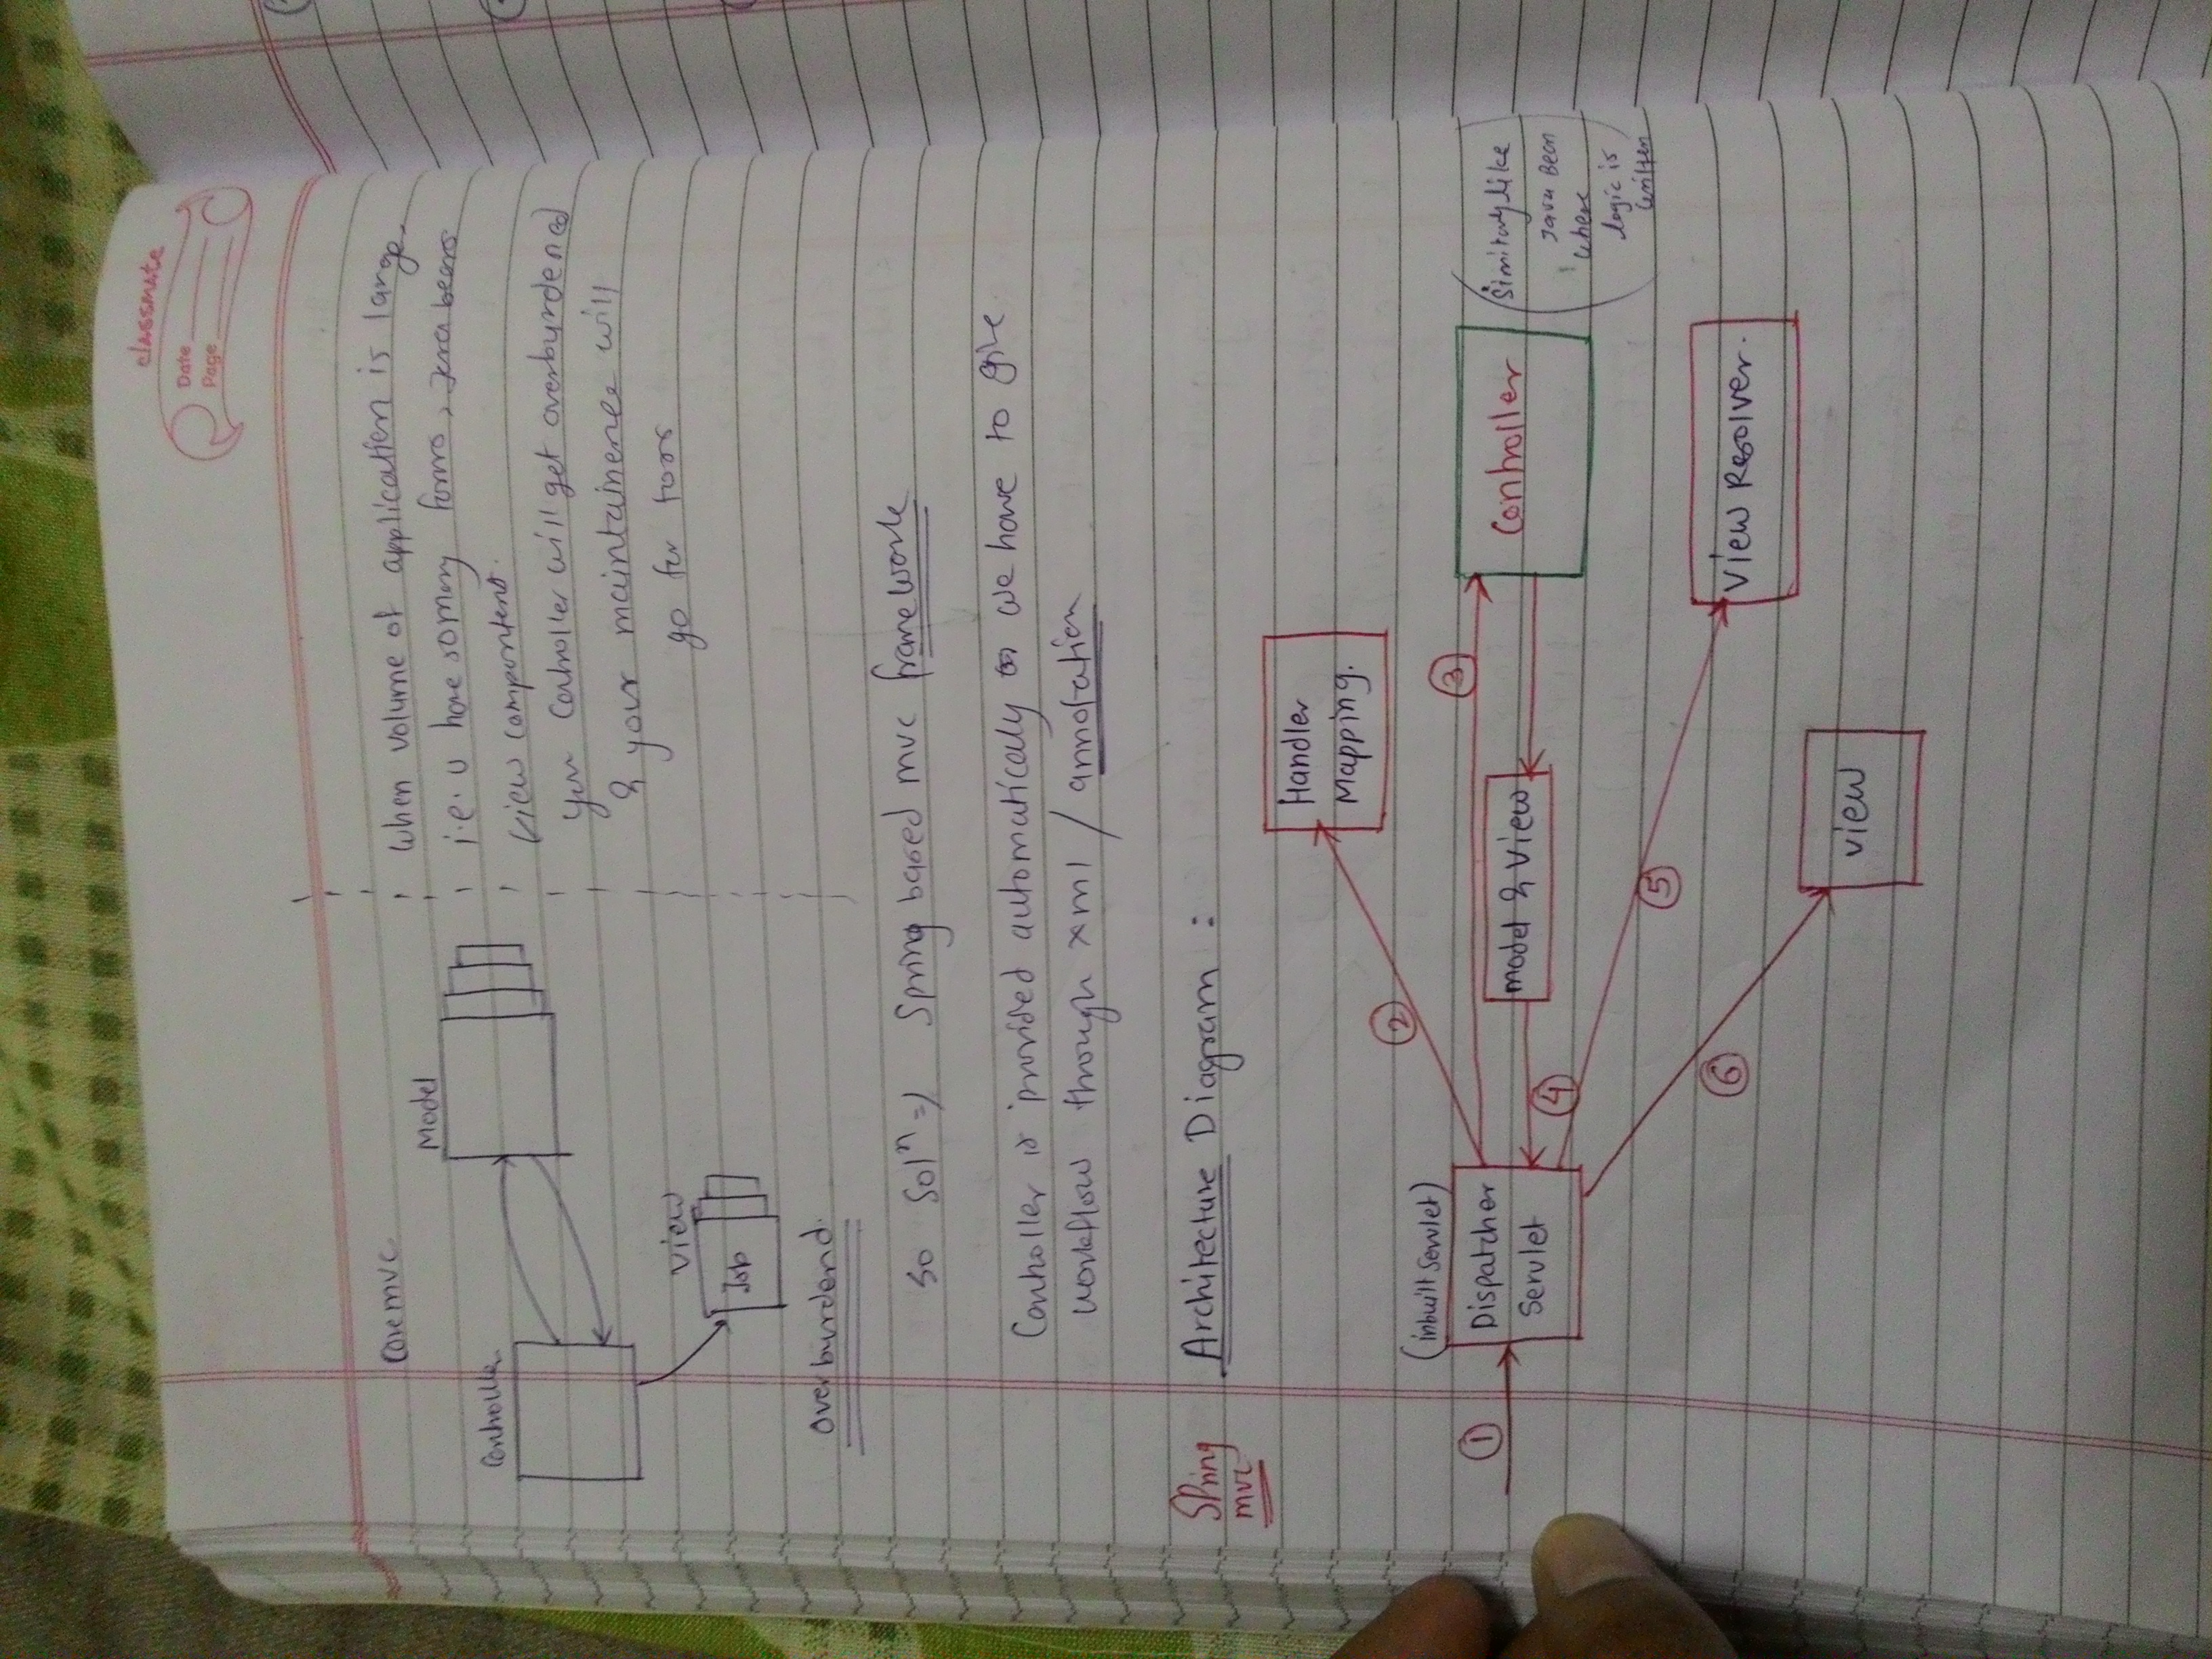 classmate
Date
Page
Core mvc
Model
Controller
View
Jsp
Overburdend.
When volume of application is large.
i.e. u have so many forms, Java beans
View compontent.
your Controller will get overburdened
& your maintainence will
go for toss
so Solⁿ => Spring based mvc framework
Controller is provided automatically we have to give
workflow though xml / annotation
Spring
mvc
Architecture Diagram :
Handler
Mapping.
②
(inbuilt Servlet)
①
Dispatcher
Servlet
③
model & View
④
Controller
Similarly like
Java Bean
where
logic is
written
⑤
⑥
View Resolver.
view